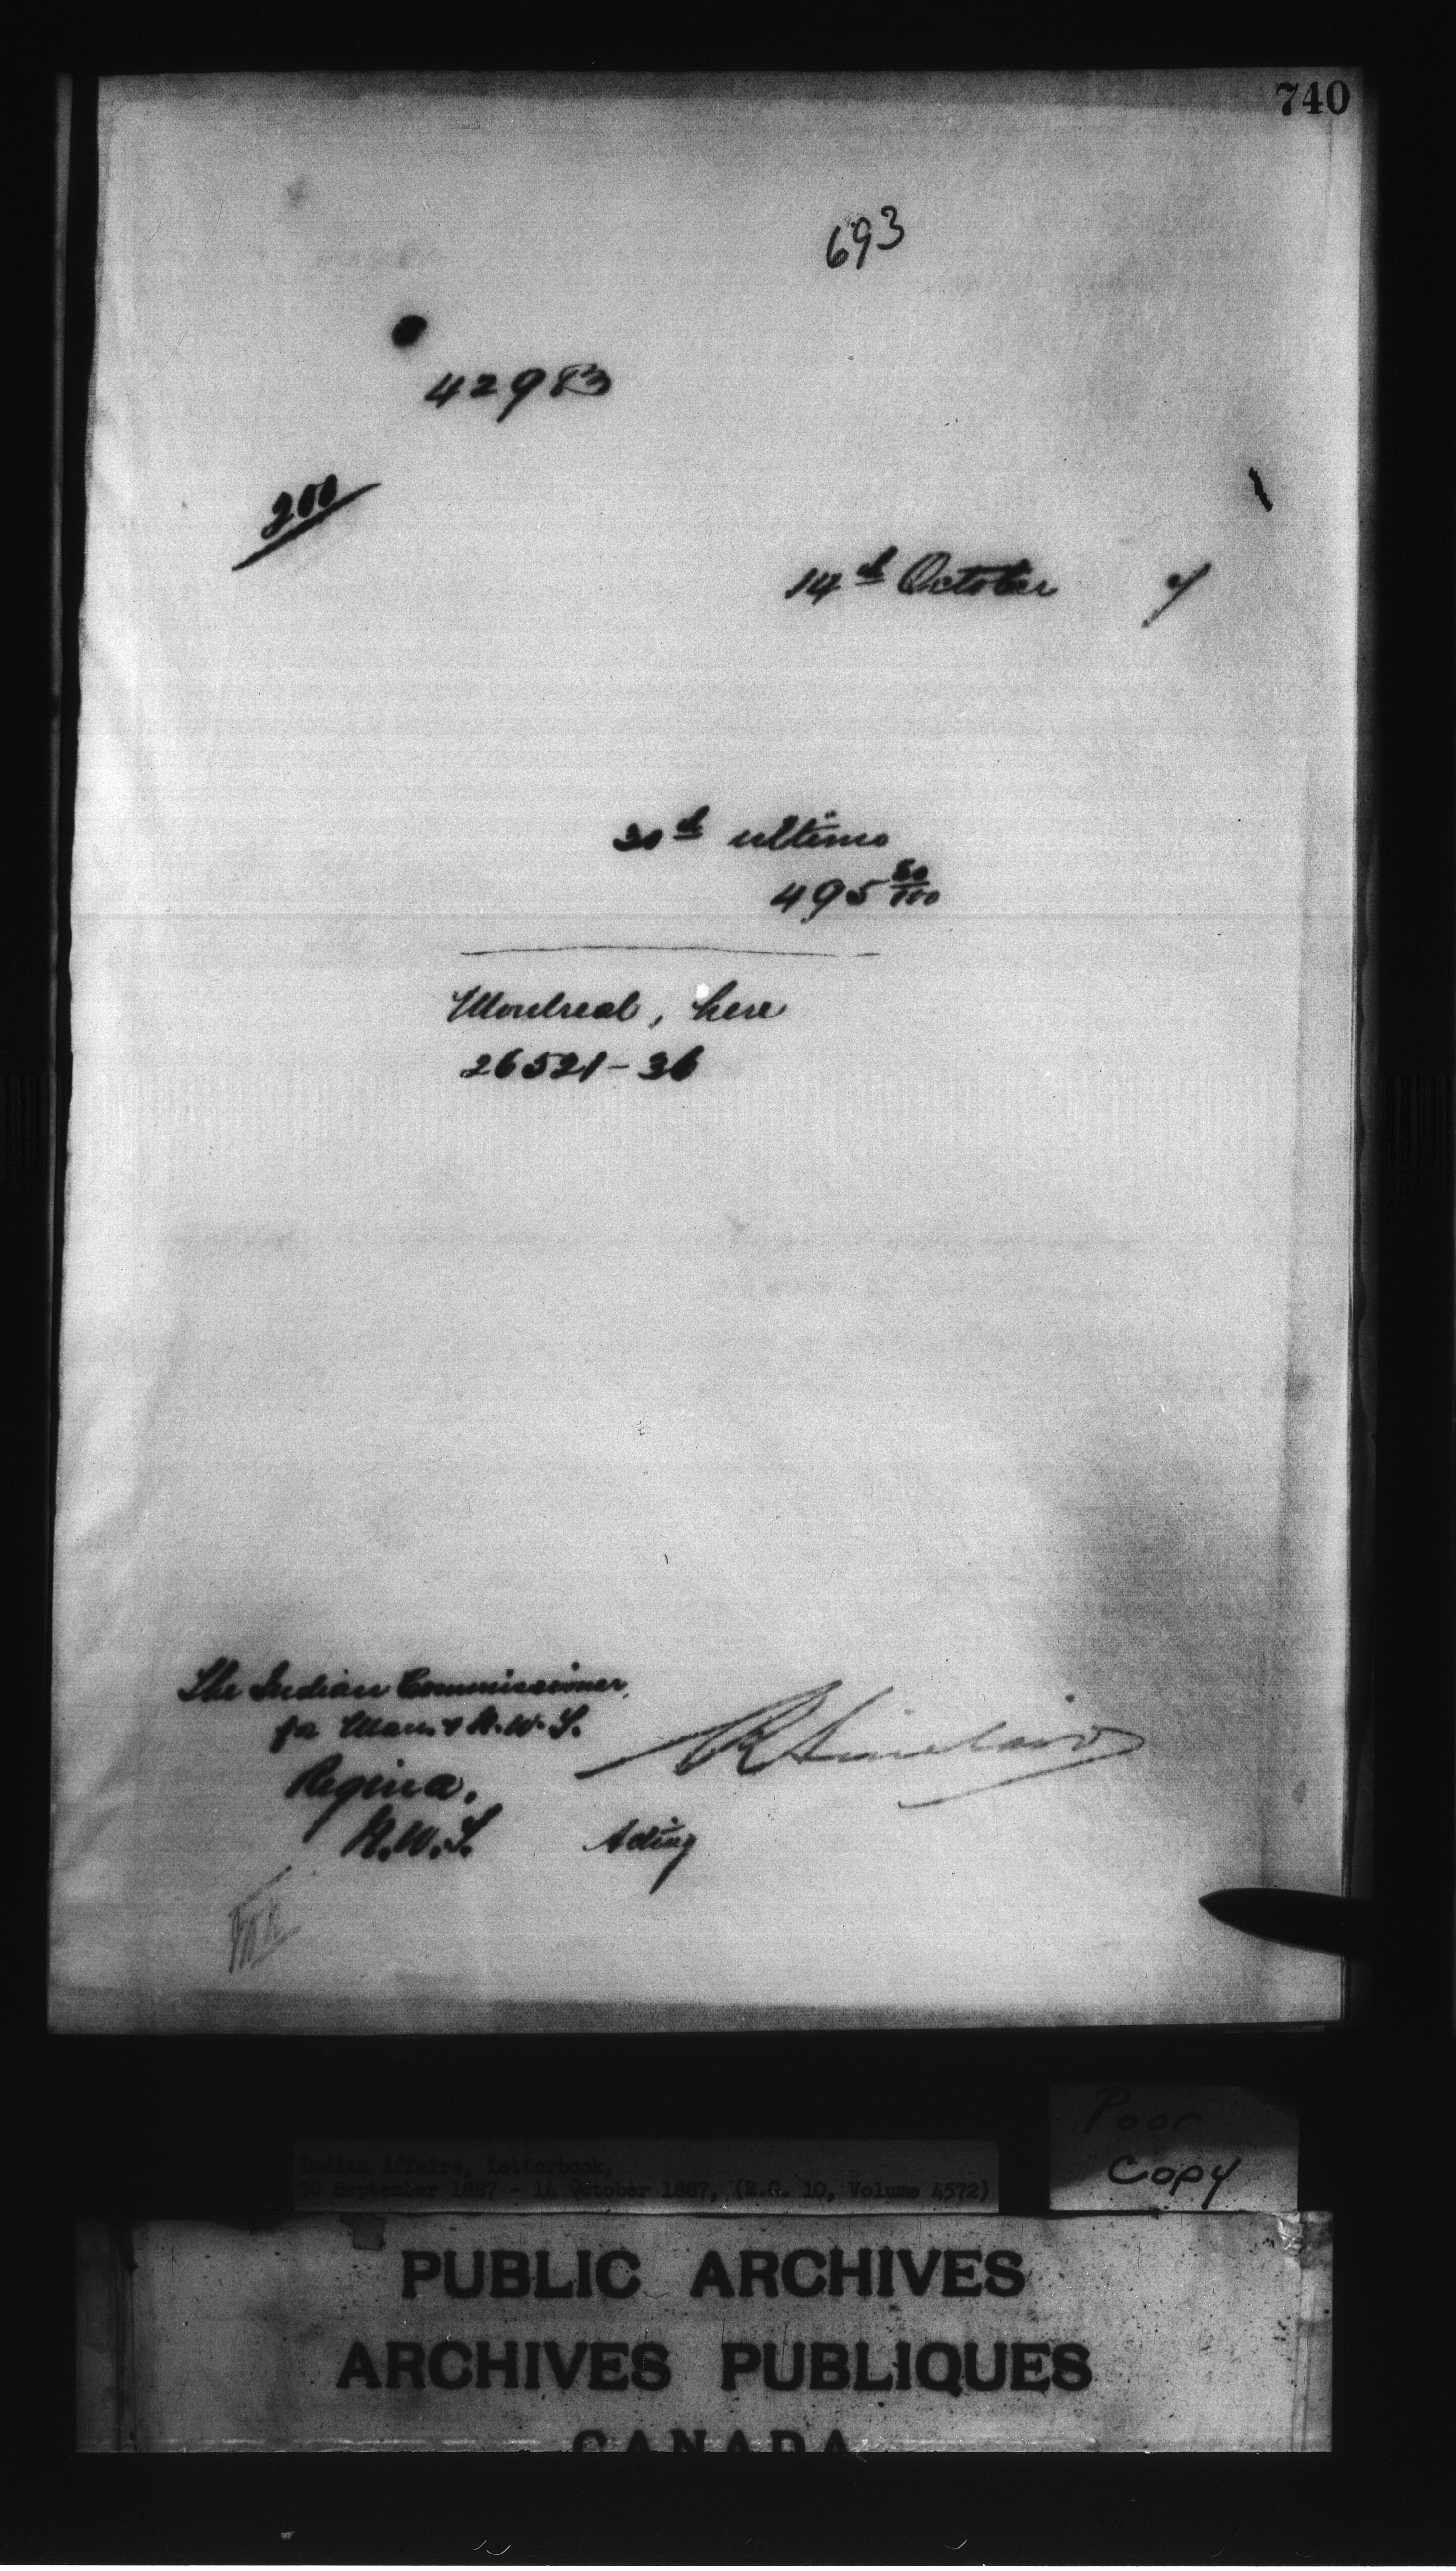 740
693
42983
200
14th October 7
30th ultimo
495 80/100
Montreal, here
26521-36
The Indian Commissioner
for Man. & N.W.T.
Regina,
N.W.T.
R Sinclair
Acting
Poor
Copy
Indian Affairs, Letterbook,
30 September 1887 - 14 October 1887, (R.G. 10, Volume 4572)
PUBLIC ARCHIVES
ARCHIVES PUBLIQUES
CANADA